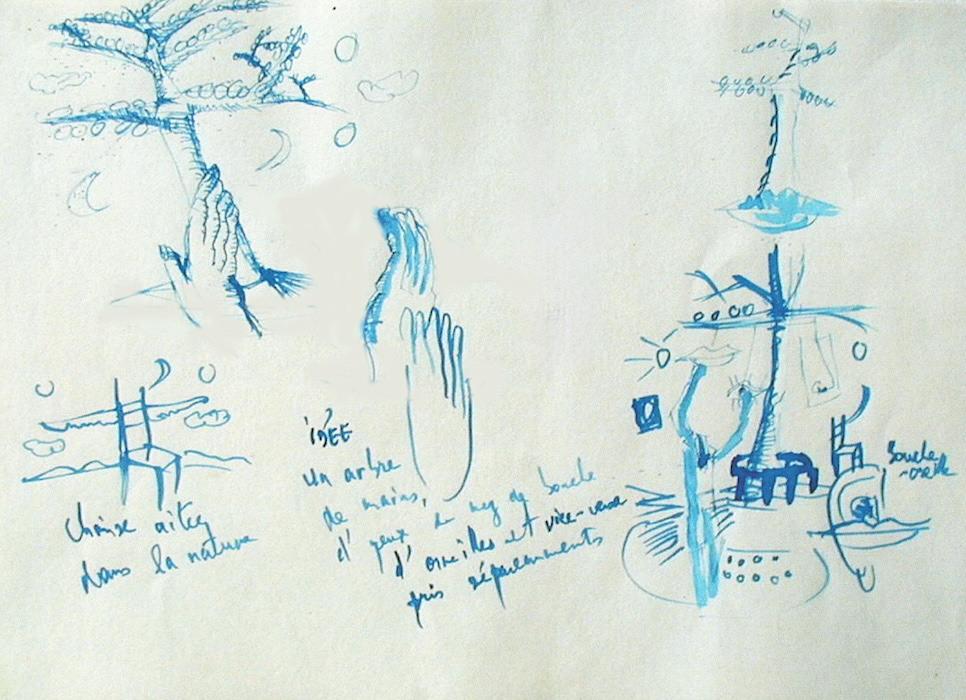 chaise
dans la nature
IDÉE
un arbre
de mains,
d'yeux de nez de bouche
d'oreilles et vice-versa
pris séparemments
Boucle
-oreille